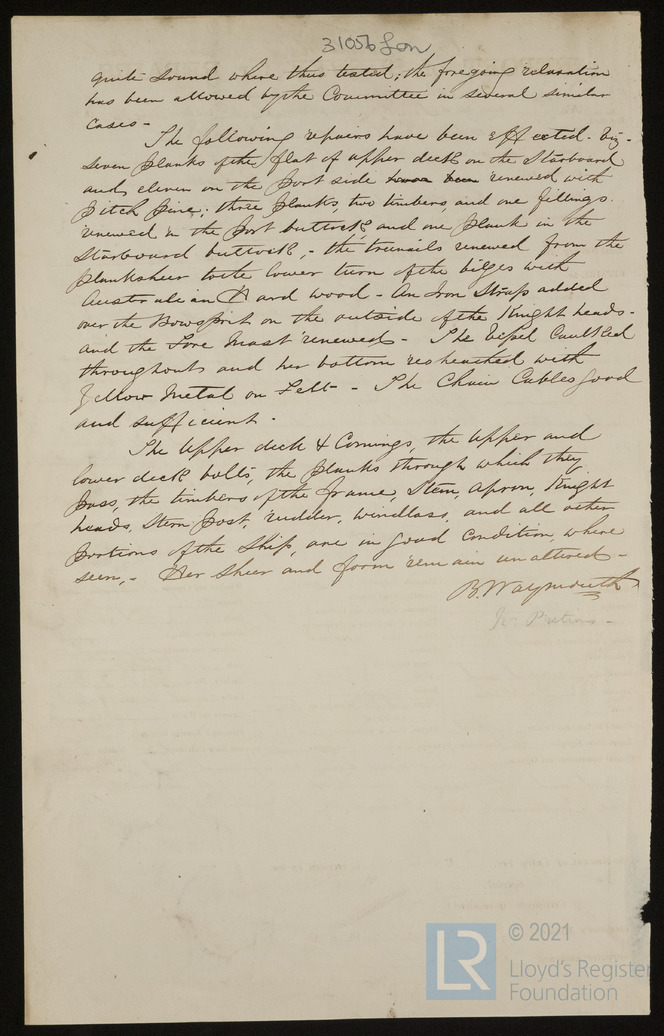 31056 Lon
quite sound where thus tested; the foregoing relaxation
has been allowed by the Committee in several similar
cases -
The following repairs have been effected - viz -
seven planks of the flat of upper deck on the Starboard
and eleven on the port side have been renewed with
pitch pine; three planks, two timbers, and one fillings
renewed in the port buttock, and one plank in the
Starboard buttock, - the trenails renewed from the
planksheer to the lower turn of the bilges with
Australian Hard wood - An Iron Strap added
over the Bowsprit on the outside of the Knight heads -
and the Fore Mast renewed - The Vessel Caulked
throughout and her bottom resheathed with
Yellow Metal on Felt - The Chain Cables good
and sufficient -
The Upper deck & Comings, the Upper and
lower deck bolts, the planks through which they
pass, the timbers of the frame, Stem, apron, Knight
heads, Stern post, rudder, windlass, and all other
portions of the Ship, are in good condition, where
seen, - Her sheer and form remain unaltered -
B. Waymouth
© 2021
LR
Lloyd's Register
Foundation